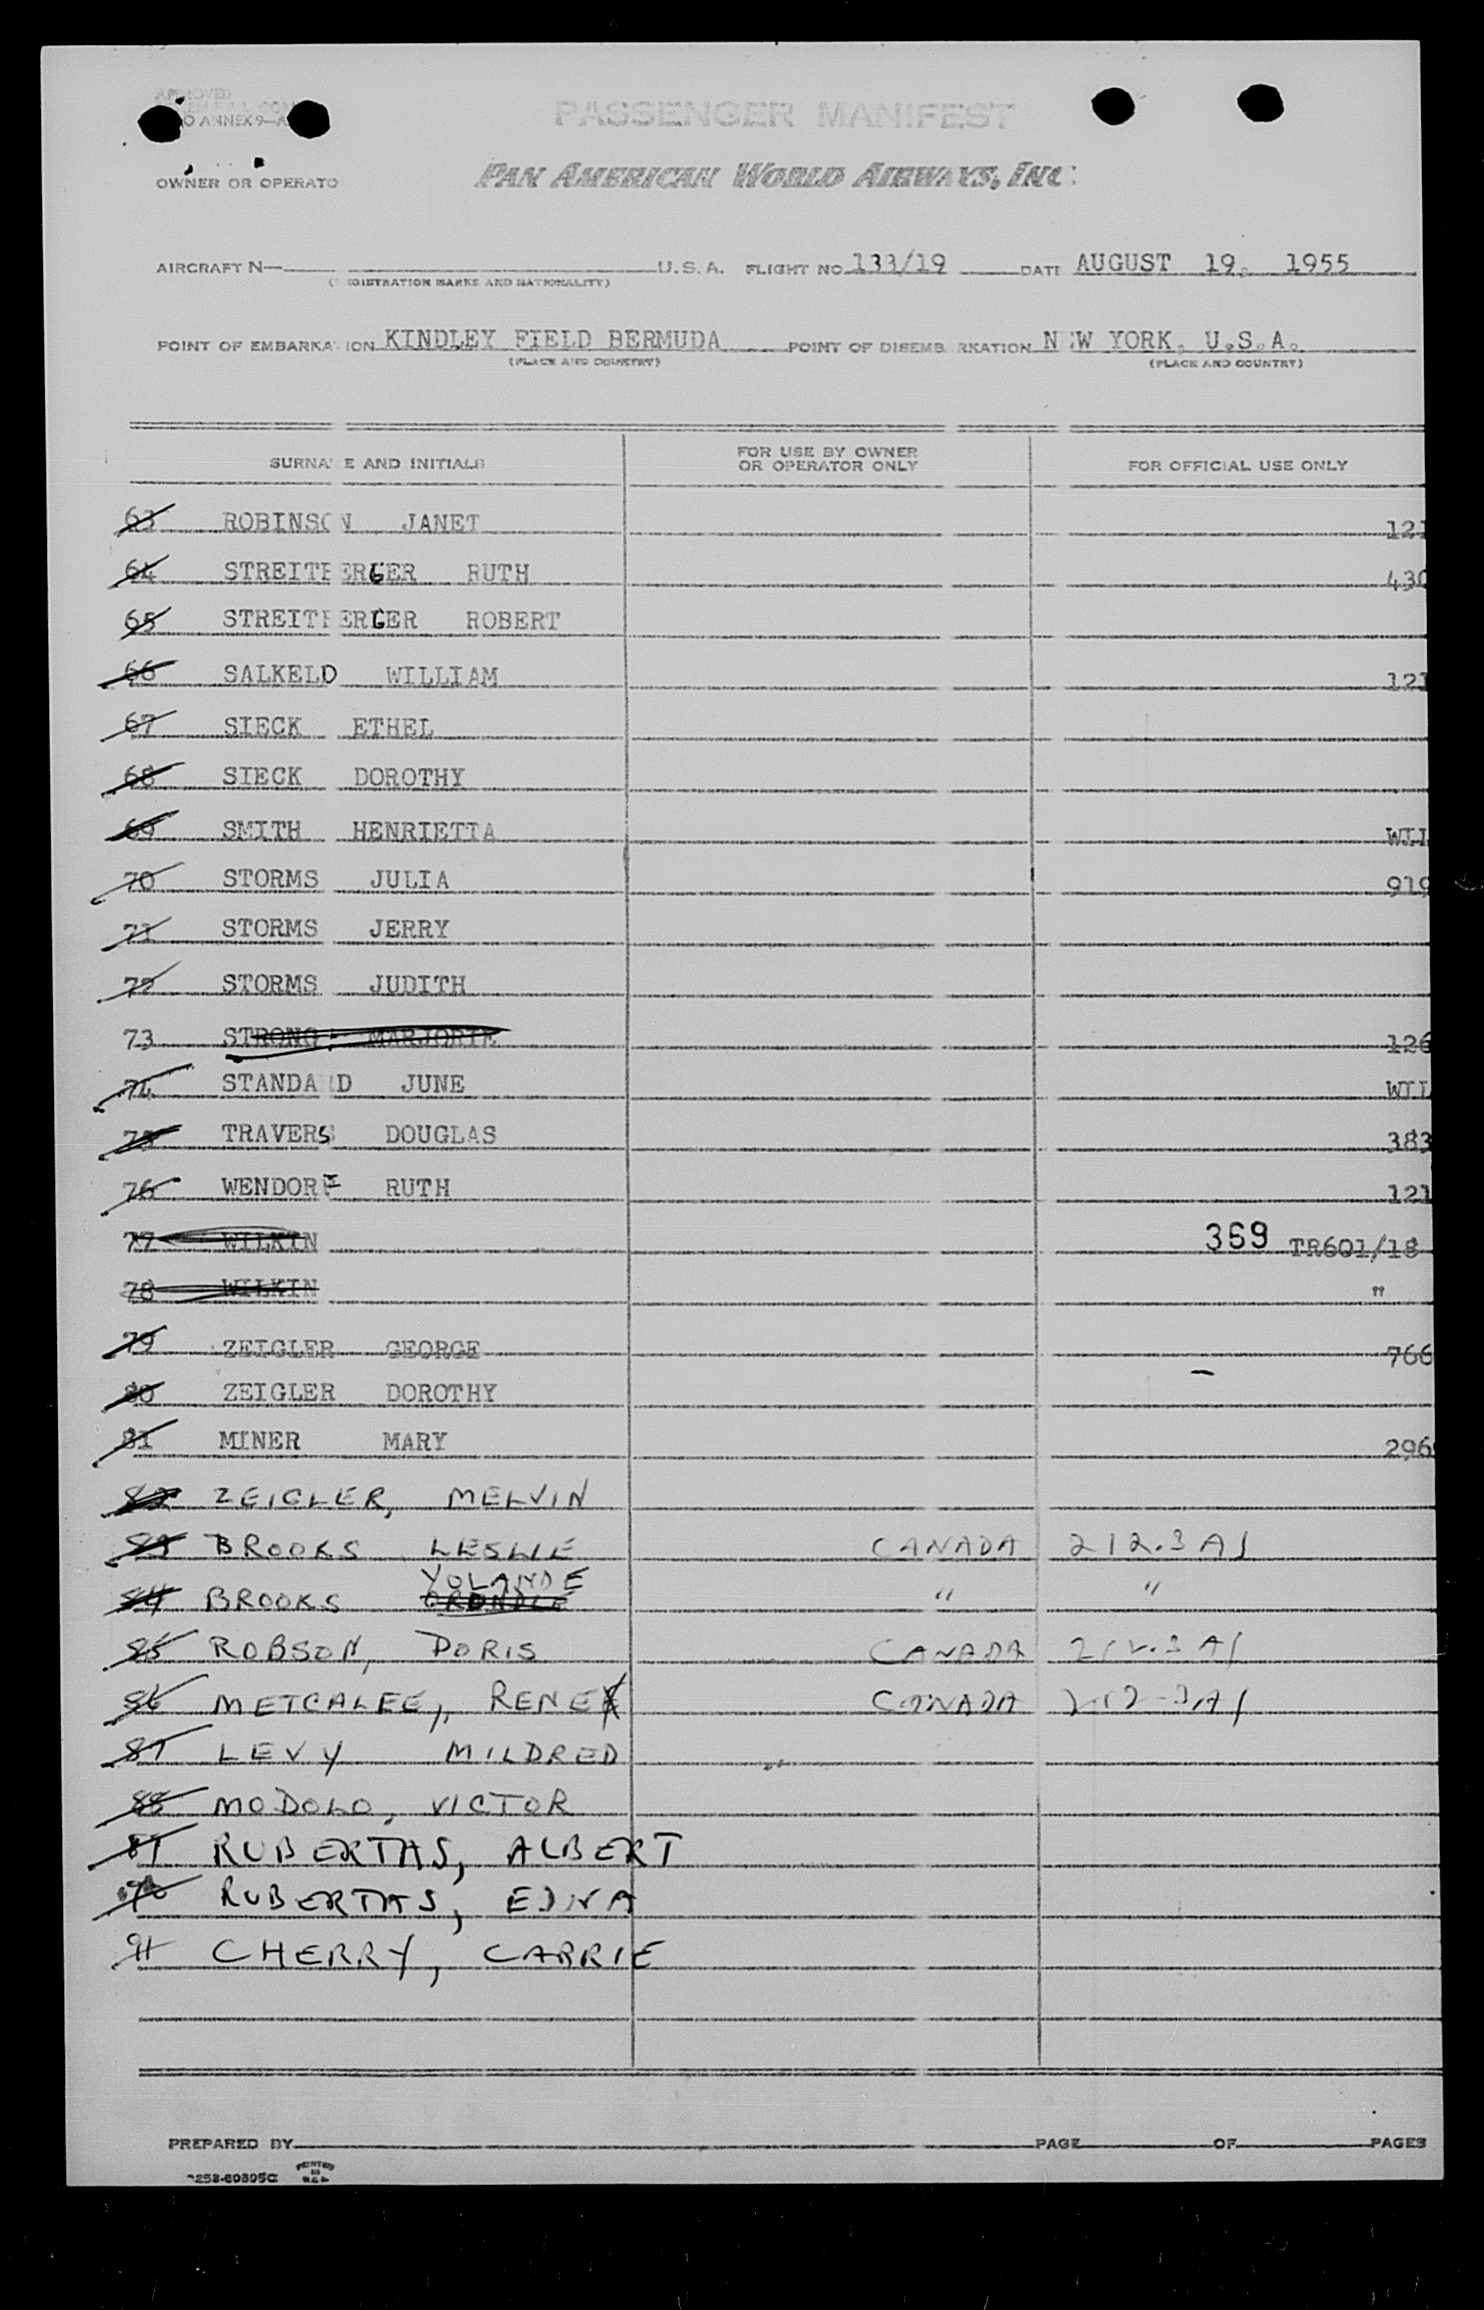 APPROVED
PASSENGER MANIFEST
ANNEX 9—A
OWNER OR OPERATO PAN AMERICAN WORLD AIRWAYS, INC.
AIRCRAFT N— U.S.A. FLIGHT NO 133/19 DATE AUGUST 19, 1955
(REGISTRATION MARKS AND NATIONALITY)
POINT OF EMBARKATION KINDLEY FIELD BERMUDA POINT OF DISEMBARKATION NEW YORK, U.S.A.
(PLACE AND COUNTRY) (PLACE AND COUNTRY)
SURNAME AND INITIALS FOR USE BY OWNER OR OPERATOR ONLY FOR OFFICIAL USE ONLY
63 ROBINSON JANET 121
64 STREITBERGER RUTH 430
65 STREITBERGER ROBERT
66 SALKELD WILLIAM 121
67 SIECK ETHEL
68 SIECK DOROTHY
69 SMITH HENRIETTA WIL
70 STORMS JULIA 919
71 STORMS JERRY
72 STORMS JUDITH
73 STRONG MARJORIE 126
74 STANDARD JUNE WIL
75 TRAVERS DOUGLAS 383
76 WENDORF RUTH 121
77 WILKIN 369 TR601/18
78 WILKIN "
79 ZEIGLER GEORGE 766
80 ZEIGLER DOROTHY
81 MINER MARY 296
82 ZEIGLER, MELVIN
83 BROOKS LESLIE CANADA 212.3 A1
84 BROOKS YOLANDE " "
85 ROBSON, DORIS CANADA 212.3 A1
86 METCALFE, RENE CANADA 212-3A1
87 LEVY MILDRED
88 MODOLO, VICTOR
89 RUBERTAS, ALBERT
90 RUBERTAS, EDNA
91 CHERRY, CARRIE
PREPARED BY PAGE OF PAGES
PRINTED IN U.S.A.